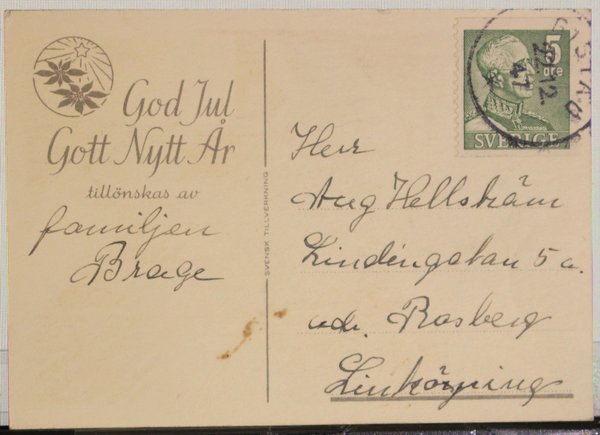 God Jul
Gott Nytt År
tillönskas av
familjen
Brage
SVENSK TILLVERKNING
5
öre
SVERIGE
22.12.
47
Herr
Aug Hellström
5 a.
adr. Rosberg
Linköping